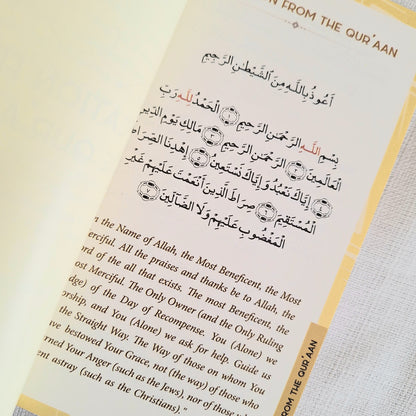 N FROM THE QUR'AAN
أَعُوذُ بِاللَّهِ مِنَ الشَّيْطَٰنِ الرَّجِيمِ
بِسْمِ اللَّهِ الرَّحْمَٰنِ الرَّحِيمِ ﴿١﴾ الْحَمْدُ لِلَّهِ رَبِّ
الْعَالَمِينَ ﴿٢﴾ الرَّحْمَٰنِ الرَّحِيمِ ﴿٣﴾ مَالِكِ يَوْمِ الدِّينِ
﴿٤﴾ إِيَّاكَ نَعْبُدُ وَإِيَّاكَ نَسْتَعِينُ ﴿٥﴾ اهْدِنَا الصِّرَاطَ
الْمُسْتَقِيمَ ﴿٦﴾ صِرَاطَ الَّذِينَ أَنْعَمْتَ عَلَيْهِمْ غَيْرِ
الْمَغْضُوبِ عَلَيْهِمْ وَلَا الضَّالِّينَ ﴿٧﴾
n the Name of Allah, the Most Beneficent, the Most
erciful. All the praises and thanks be to Allah, the
ord of the all that exists. The most Beneficent, the
ost Merciful. The Only Owner (and the Only Ruling
dge) of the Day of Recompense. You (Alone) we
orship, and You (Alone) we ask for help. Guide us
the Straight Way. The Way of those on whom You
ve bestowed Your Grace, not (the way) of those who
rned Your Anger (such as the Jews), nor of those who
ent astray (such as the Christians)."
FROM THE QUR'AAN